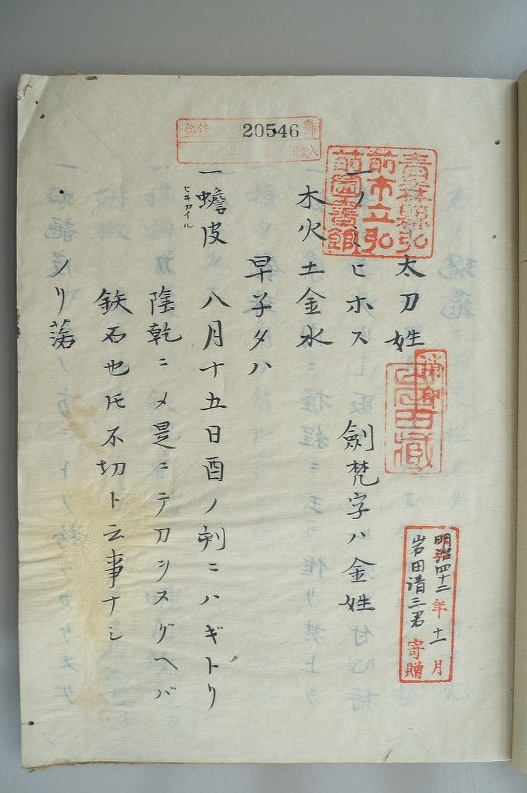 20546
青森縣弘
前市立弘
前圖書館
太刀姓
消印
明治四十二年十一月
岩田清三君寄贈
ヒホス 劍梵字ハ金姓
木火土金水
早子タハ
一蟾皮 八月十五日酉ノ刻ニハギトリ
ヒキガイル
陰乾ニメ是ニテ刀シスグヘバ
鉄石也𪜈不切ト云事ナシ
ノリ